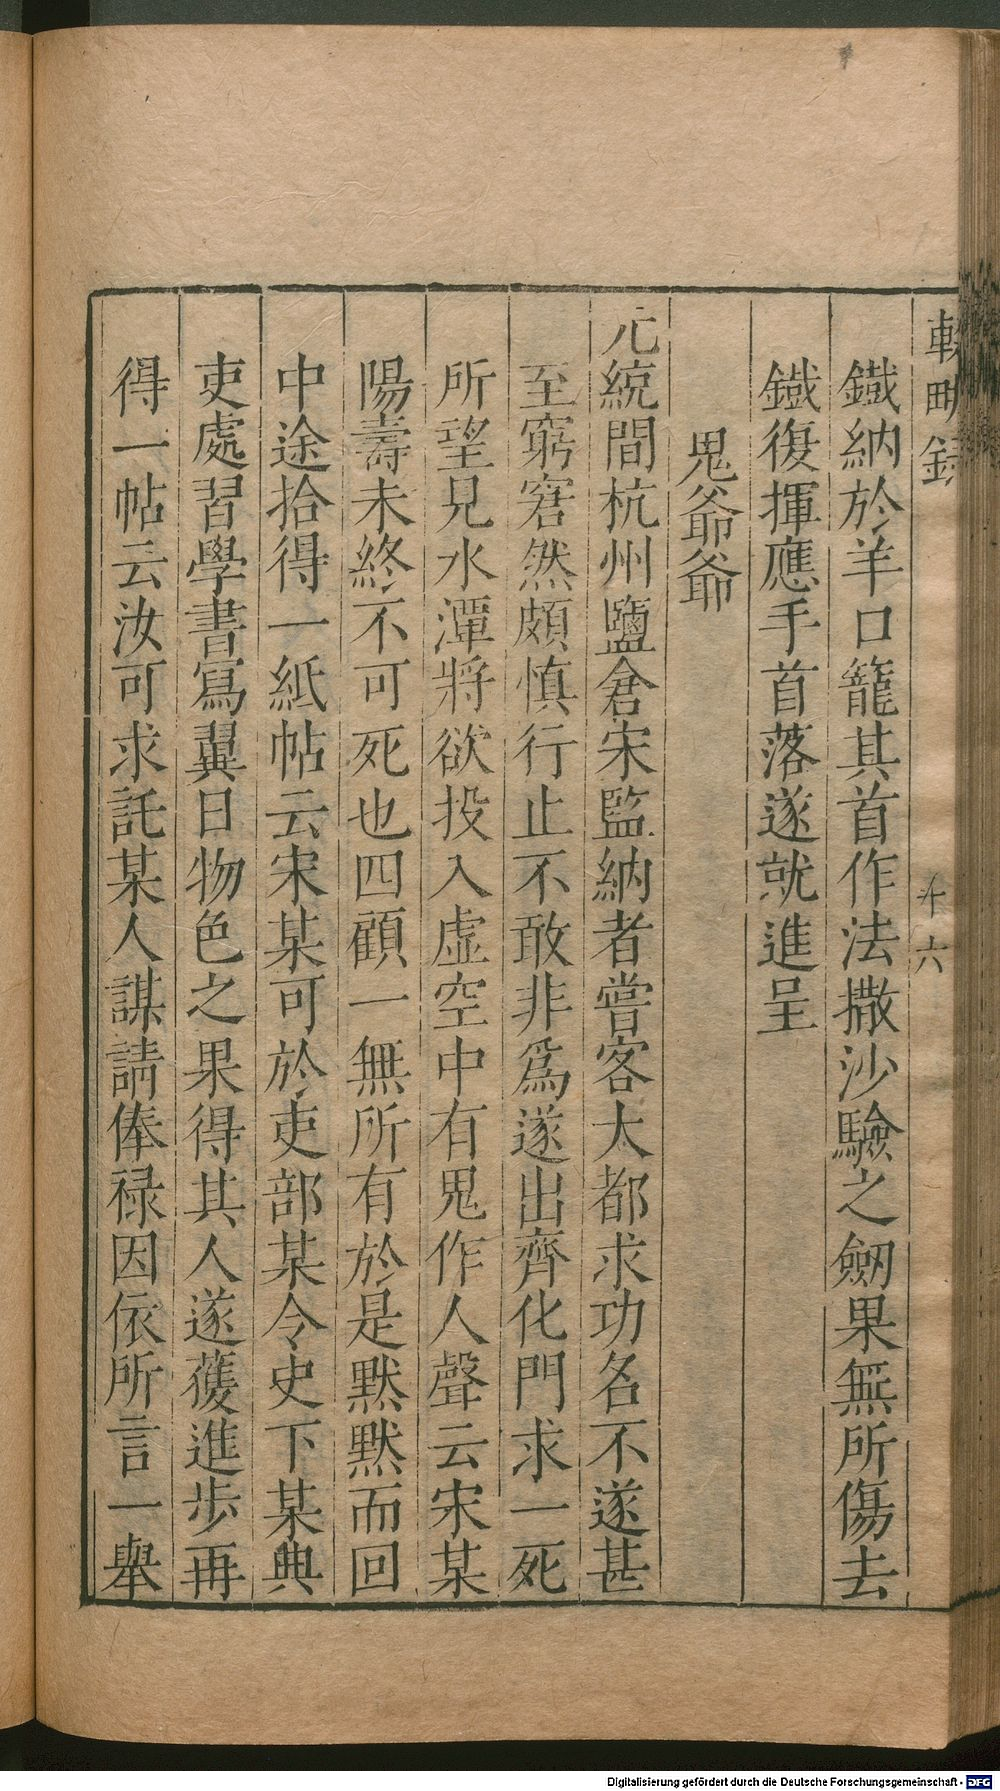 輟畊録
十六
鐡納於羊口籠其首作法撒沙驗之劔果無所傷去
鐡復揮應手首落遂就進呈
鬼爺爺
元統間杭州鹽倉宋監納者嘗客大都求功名不遂甚
至窮窘然頗慎行止不敢非爲遂出齊化門求一死
所望見水潭將欲投入虚空中有鬼作人聲云宋某
陽壽未終不可死也四顧一無所有於是默默而回
中途拾得一紙帖云宋某可於吏部某令史下某典
吏處習學書寫翼日物色之果得其人遂獲進歩再
得一帖云汝可求託某人謀請俸禄因依所言一舉
Digitalisierung gefördert durch die Deutsche Forschungsgemeinschaft - DFG